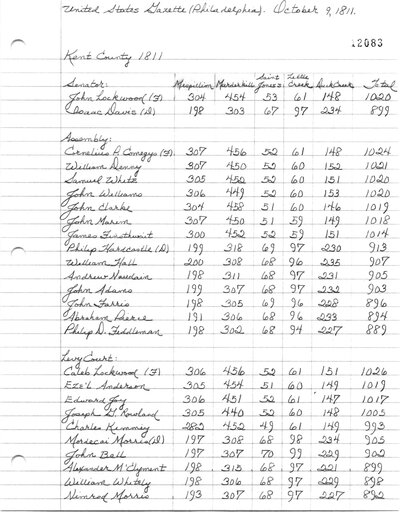 United States Gazette (Philadelphia). October 9, 1811.
12083
Kent County 1811
Senator: Mispillion Murderkill Saint Jones's Little Creek Duck Creek Total
John Lockwood (F) 304 454 53 61 148 1020
Isaac Davis (D) 198 303 67 97 234 899
Assembly:
Cornelius P. Comegys (F) 307 456 52 61 148 1024
William Denny 307 450 52 60 152 1021
Samuel White 305 452 52 60 151 1020
John Williams 306 449 52 60 153 1020
John Clarke 304 458 51 60 146 1019
John Marim 307 450 51 59 149 1018
James Fisthwait 300 452 52 59 151 1014
Philip Hardcastle (D) 199 318 69 97 230 913
William Hall 200 308 68 96 235 907
Andrew Naudain 198 311 68 97 231 905
John Adams 199 307 68 97 232 903
John Farris 198 305 69 96 228 896
Abraham Pierce 191 306 68 96 233 894
Philip D. Fiddleman 198 302 68 94 227 889
Levy Court:
Caleb Lockwood (F) 306 456 52 61 151 1026
Eze'l Anderson 305 454 51 60 149 1019
Edward Joy 306 451 52 61 147 1017
Joseph G. Rowland 305 440 52 60 148 1005
Charles Kemmey 282 452 49 61 149 993
Mordecai Morris (D) 197 308 68 98 234 905
John Bell 197 307 70 99 229 902
Alexander M'Clyment 198 315 68 97 221 899
William Whitely 198 306 68 97 229 898
Nimrod Morris 193 307 68 97 227 892